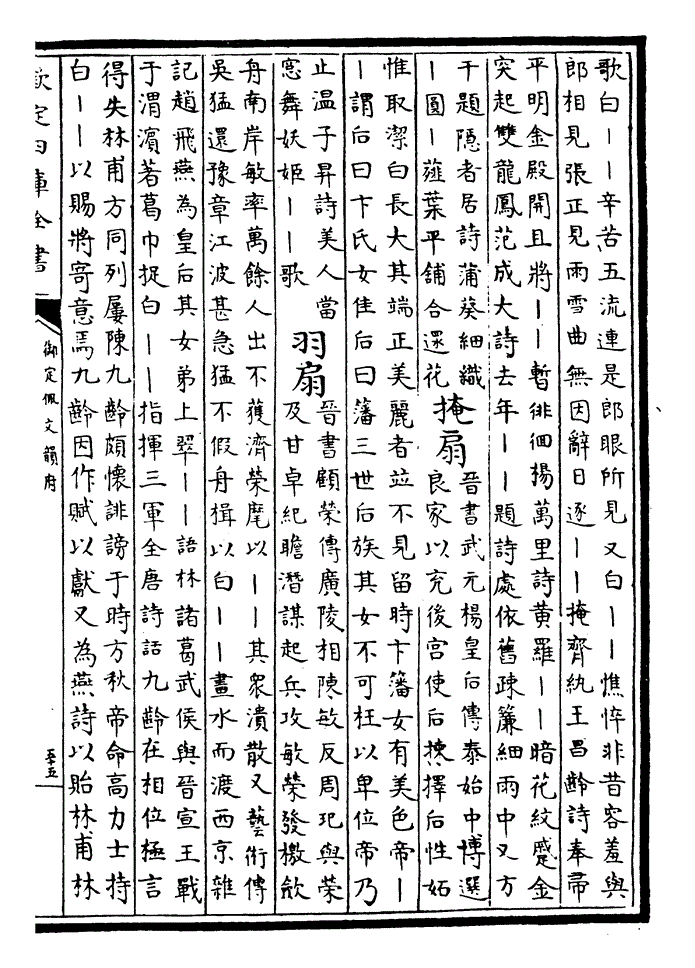 歌白丨丨辛苦五流連是郎眼所見又白丨丨憔悴非昔容羞與
郎相見張正見雨雪曲無因辭日逐丨丨掩齊紈王昌齡詩奉帚
平明金殿開且將丨丨暫徘徊楊萬里詩黄羅丨丨暗花紋蹙金
突起雙龍鳳范成大詩去年丨丨題詩處依舊疎簾細雨中又方
干題隠者居詩蒲葵細織
丨圓丨薤葉平鋪合還花
掩扇
晉書武元楊皇后傳泰始中博選
良家以充後宫使后揀擇后性妬
惟取潔白長大其端正美麗者竝不見留時卞籓女有美色帝丨
丨謂后曰卞氏女佳后曰籓三世后族其女不可枉以卑位帝乃
止温子昇詩美人當
窓舞妖姬丨丨歌
羽扇
晉書顧榮傳廣陵相陳敏反周玘與榮
及甘卓紀瞻潛謀起兵攻敏榮發檄斂
舟南岸敏率萬餘人出不獲濟榮麾以丨丨其衆潰散又藝術傳
吳猛還豫章江波甚急猛不假舟楫以白丨丨畫水而渡西京雜
記趙飛燕為皇后其女弟上翠丨丨語林諸葛武侯與晉宣王戰
于渭濱著葛巾捉白丨丨指揮三軍全唐詩話九齡在相位極言
得失林甫方同列屢陳九齡頗懷誹謗于時方秋帝命高力士持
白丨丨以賜將寄意焉九齡因作賦以獻又為燕詩以貽林甫林
欽定四庫全書
御定佩文韻府